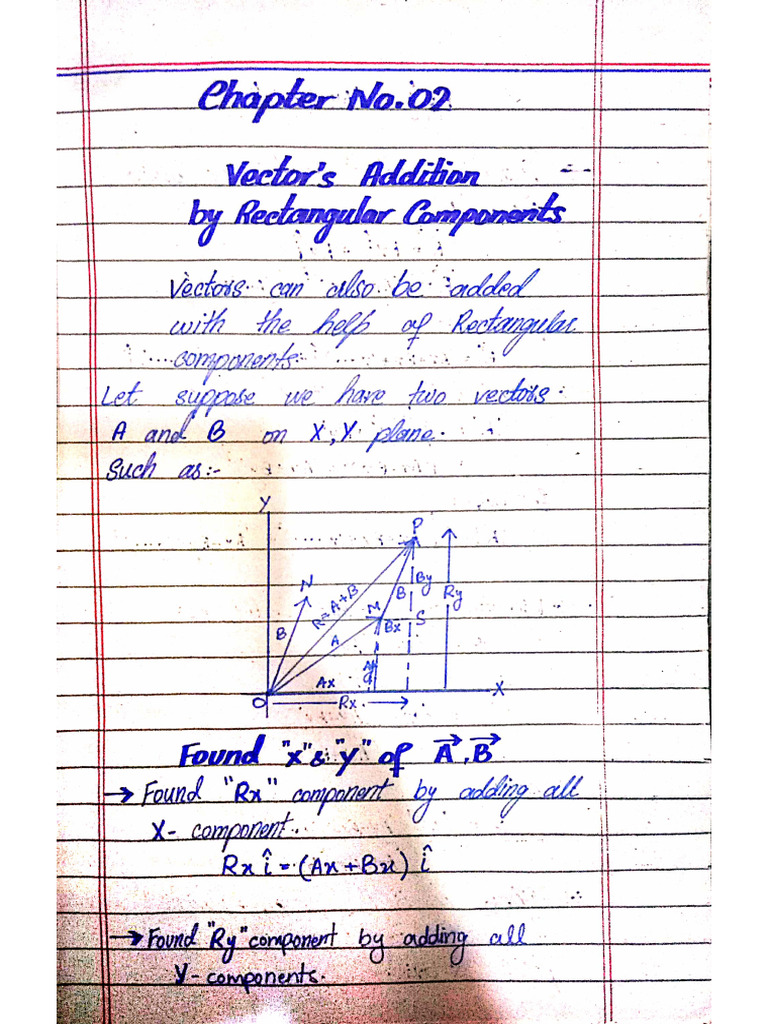 Chapter No.02
Vector's Addition
by Rectangular Components
Vectors can also be added
with the help of Rectangular
components.
Let suppose we have two vectors
A and B on X, Y plane.
Such as:-
Y
P
N
R=A+B
B
By
Ry
M
B
A
Bx
S
Ax
X
O
Rx
Found "x" & "y" of A⃗, B⃗
→ Found "Rx" component by adding all
X- component.
Rx î = (Ax+Bx) î
→ Found "Ry" component by adding all
Y- components.